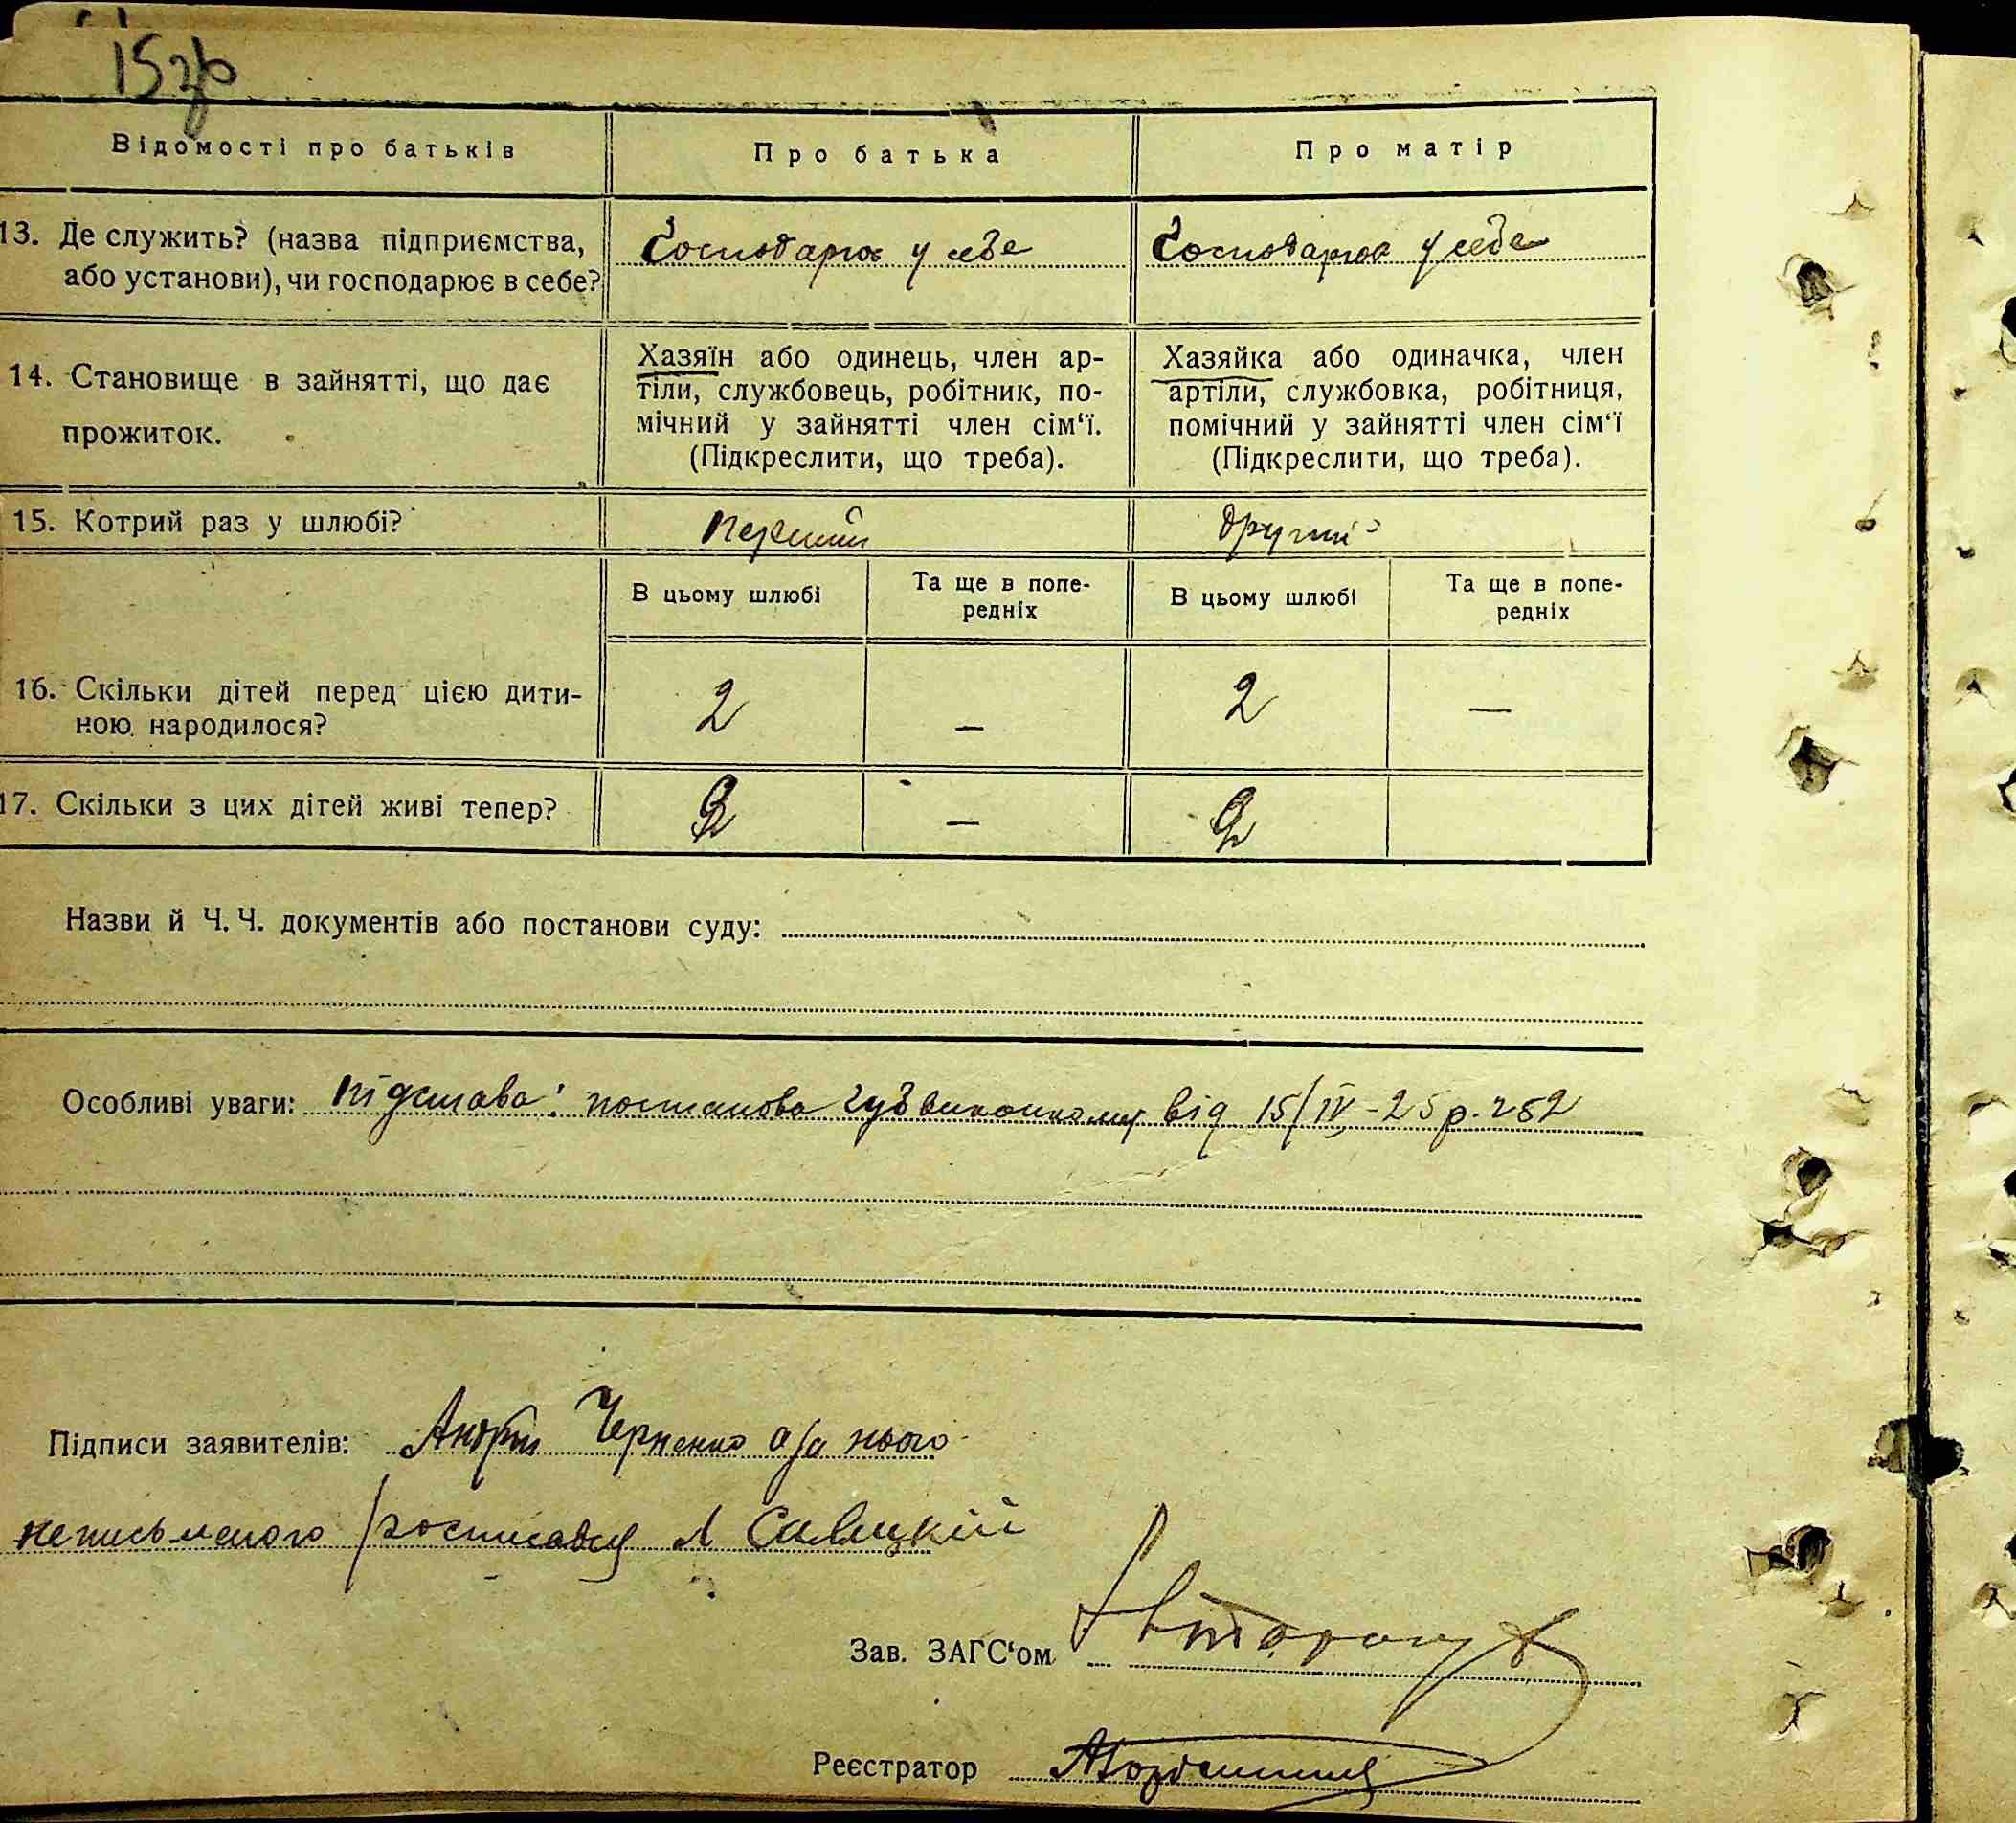 15зв
Відомості про батьків
Про батька
Про матір
13. Де служить? (назва підприємства,
або установи), чи господарює в себе?
Господарює у себе
Господарює у себе
14. Становище в зайнятті, що дає
прожиток.
Хазяїн або одинець, член ар-
тіли, службовець, робітник, по-
мічний у зайнятті член сім‘ї.
(Підкреслити, що треба).
Хазяйка або одиначка, член
артіли, службовка, робітниця,
помічний у зайнятті член сім‘ї
(Підкреслити, що треба).
15. Котрий раз у шлюбі?
перший
другий
В цьому шлюбі
Та ще в попе-
редніх
В цьому шлюбі
Та ще в попе-
редніх
16. Скільки дітей перед цією дити-
ною народилося?
2
—
2
—
17. Скільки з цих дітей живі тепер?
2
—
2
Назви й Ч. Ч. документів або постанови суду:
Особливі уваги: підстава: постанова губвиконкому від 15/IV-25 р. 252
Підписи заявителів: Андрій Черненко а за нього
неписьменого росписався Савицкій
Зав. ЗАГС‘ом
Реєстратор